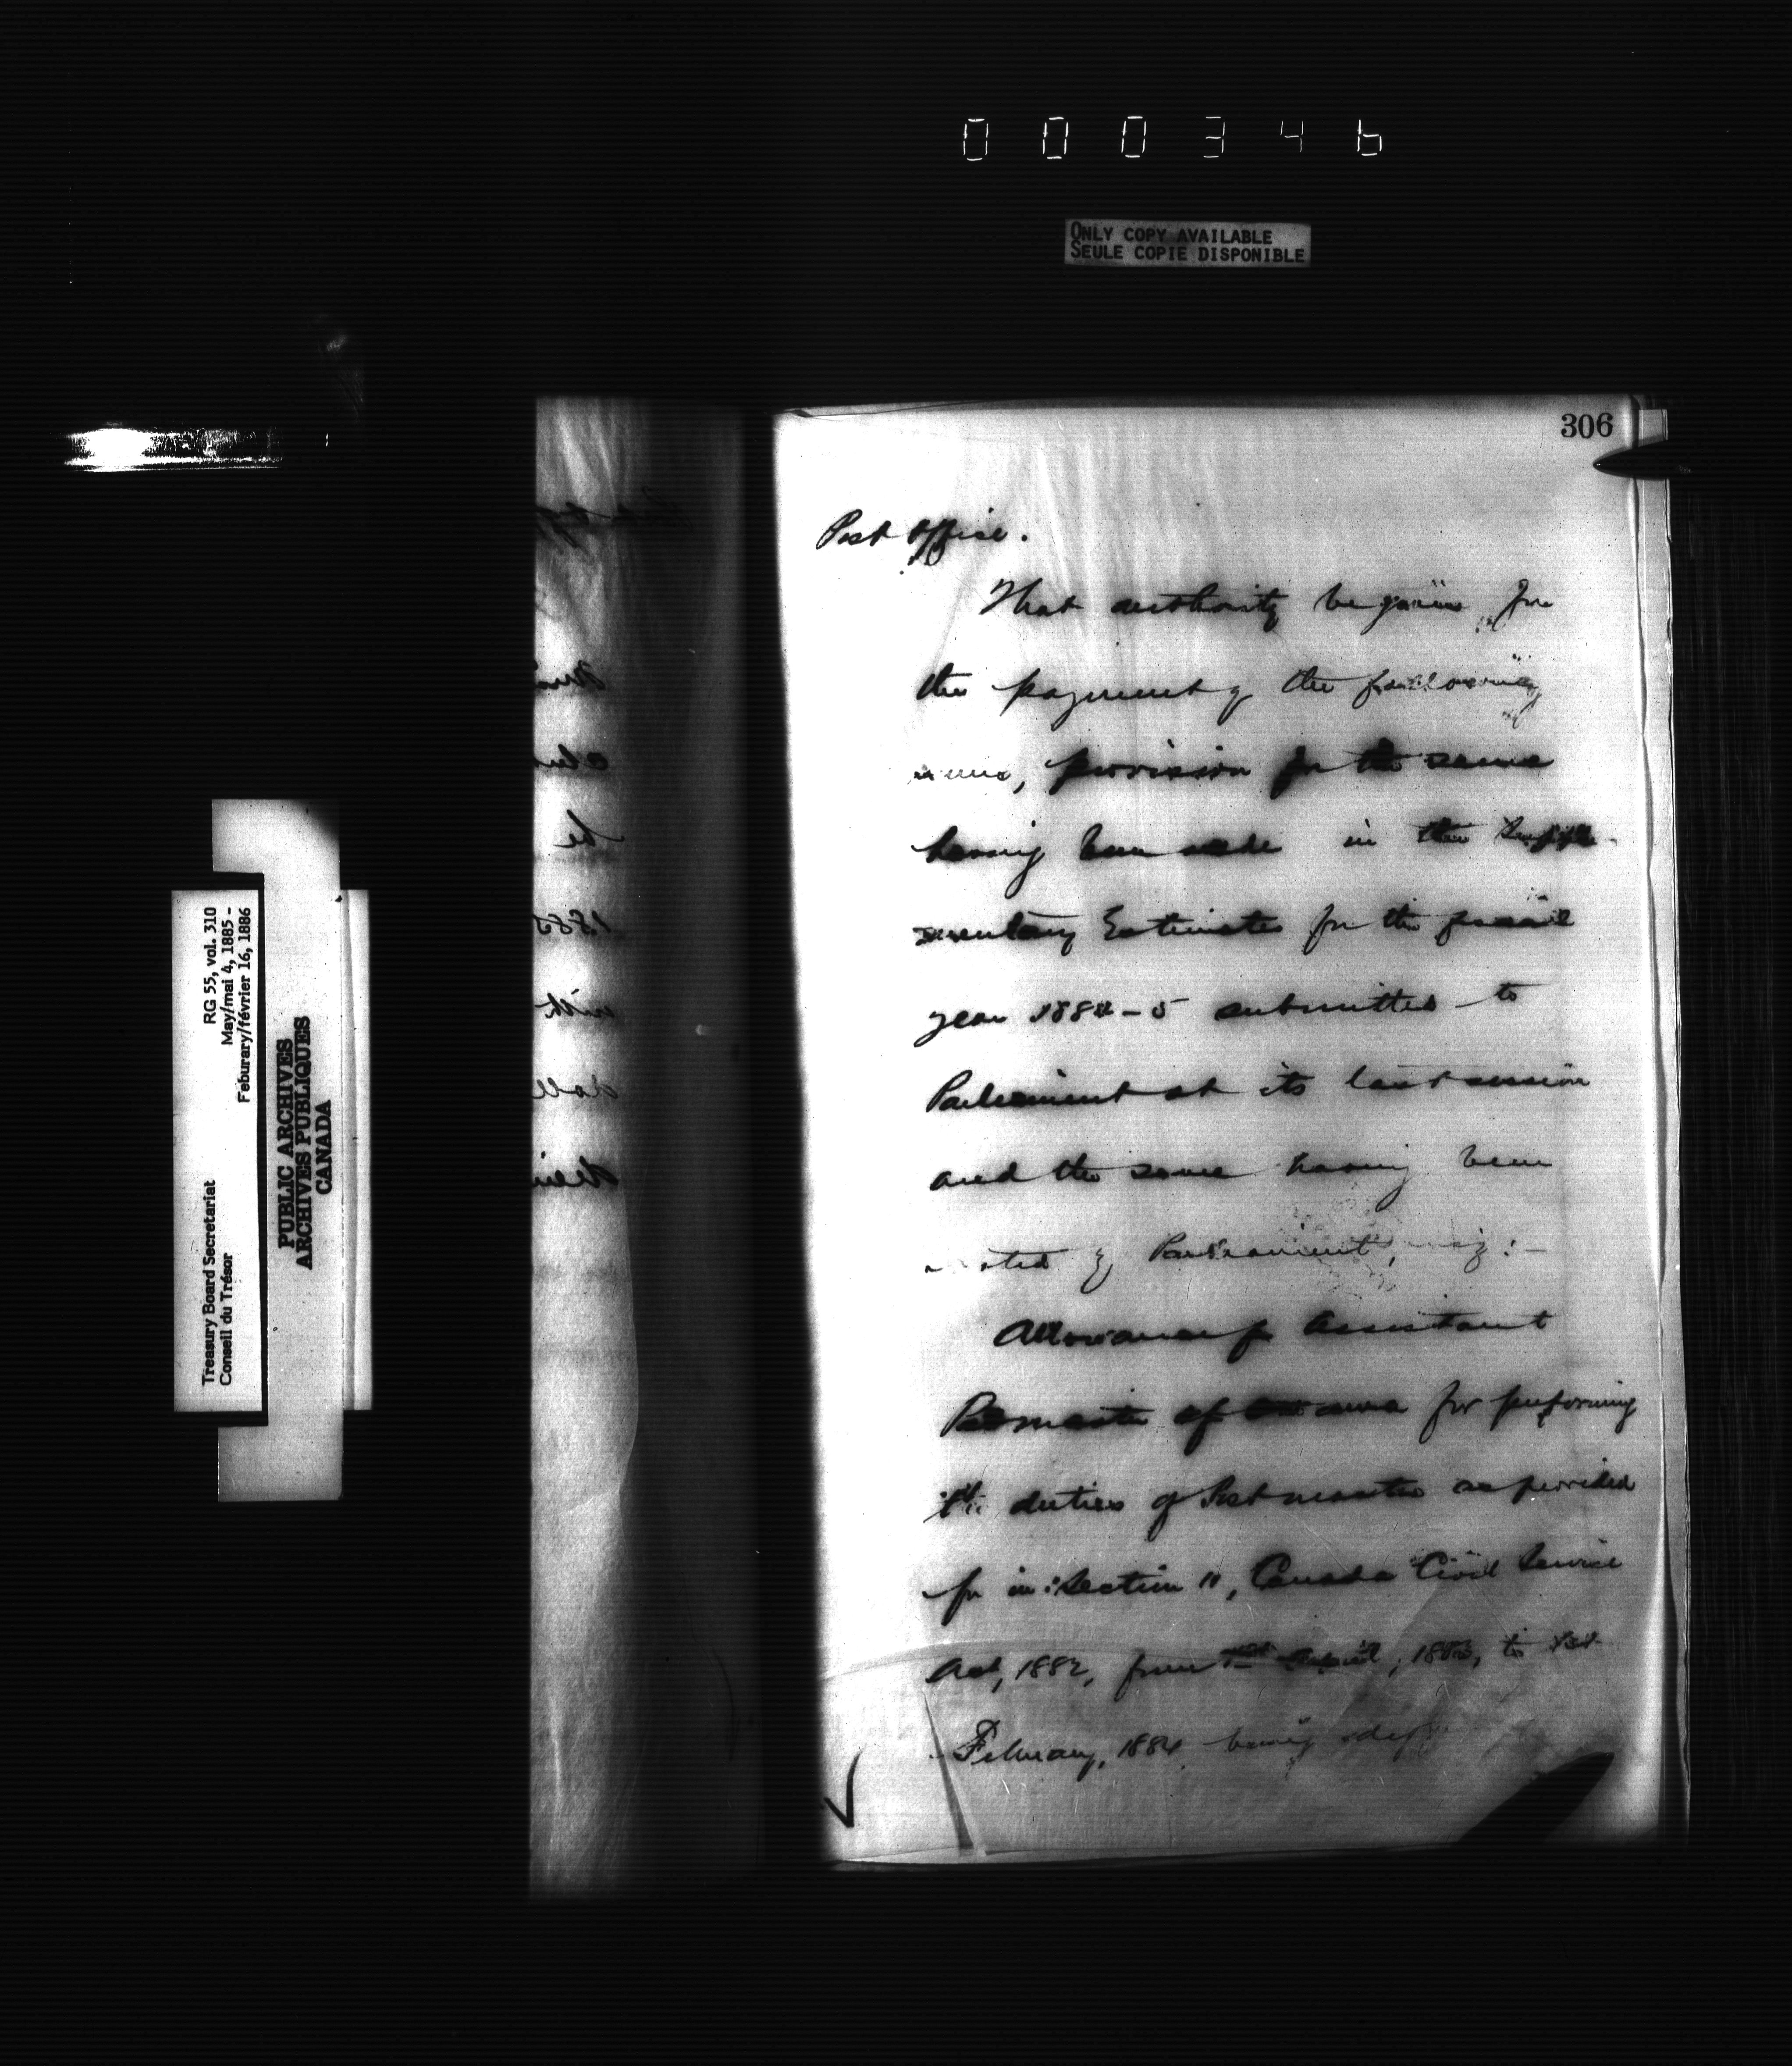 000346
ONLY COPY AVAILABLE
SEULE COPIE DISPONIBLE
RG 55, vol. 310
May/mai 4, 1885 -
Feburary/février 16, 1886
Treasury Board Secretariat
Conseil du Trésor
PUBLIC ARCHIVES
ARCHIVES PUBLIQUES
CANADA
306
Post Office.
That authority be given for
the payment of the following
provision for the same
having been made in the Supple-
mentary Estimates for the fiscal
year 1884-5 submitted to
Parliament at its last session
and the same having been
voted by Parliament, viz:-
Allowance for Assistant
Postmaster of for performing
the duties of Postmaster as provided
for in Section 11, Canada Civil Service
Act, 1882, from April, 1883, to 1st
February, 1884 being